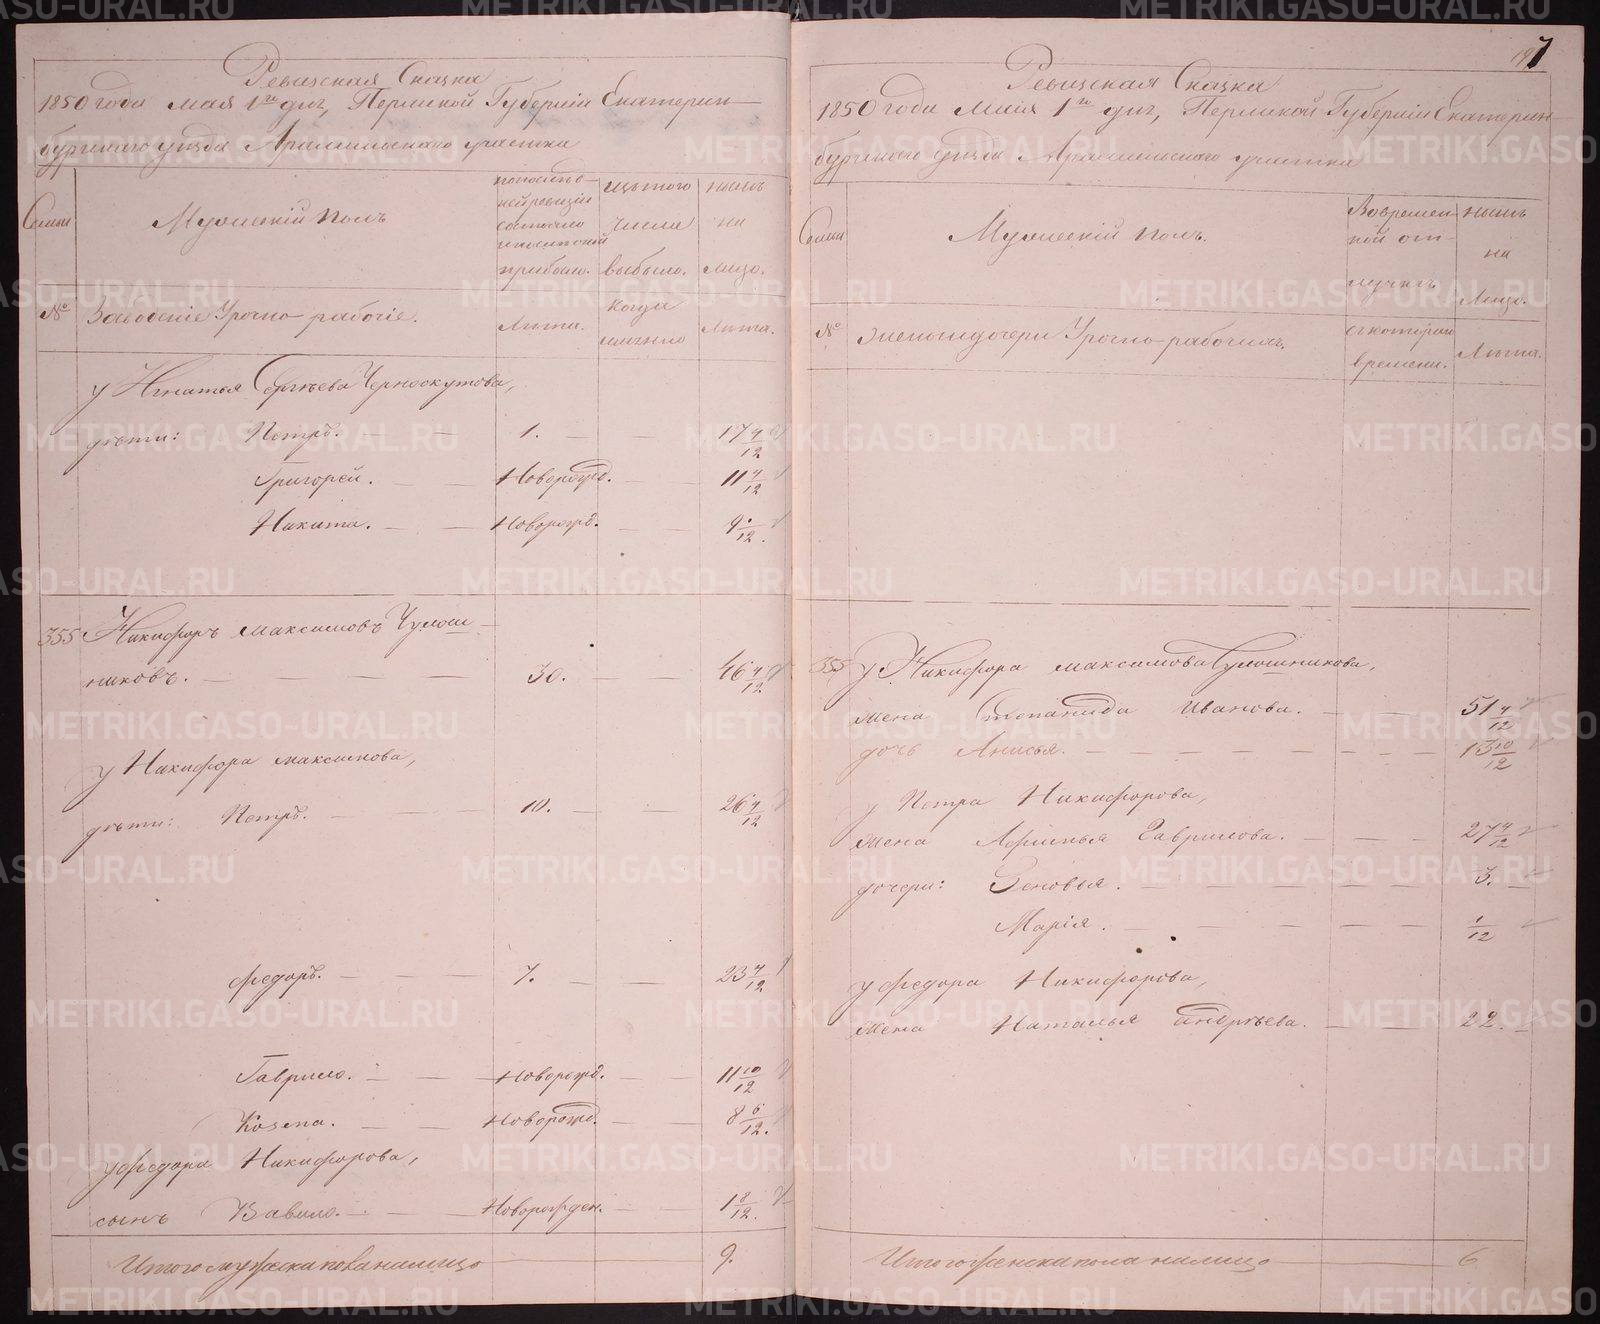 Ревизская Сказка
1850 года мая 1го дня, Пермской Губернiи Екатерин-
бургскаго уѣзда Арамильскаго участка
Семьи
Мужескiй полъ
по послѣд-
ней ревизiи
состояло
и послѣ оной
прибыло.
Изъ того
числа
выбыло.
Нынѣ
на
лицо.
№
Заводскiе Урочно-рабочiе.
Лѣта.
Когда
именно
Лѣта.
у Игнатья Сергѣева Черноскутова,
дѣти: Петръ. 1. 17 4/12
Григорей. Новорожд. 11 4/12
Никита. Новорожд. 9 /12.
355 Никифоръ Максимовъ Чулош-
никовъ. 30. 46 4/12
у Никифора Максимова,
дѣти: Петръ. 10. 26 4/12
Федоръ. 7. 23 4/12
Гаврило. Новорожд. 11 10/12
Козема. Новорожд. 8 6/12.
у Федора Никифорова,
сынъ Вавило. Новорожден. 1 8/12.
Итого мужеска пола на лицо 9.
197
Ревизская Сказка
1850 года Маiя 1го дня, Пермской Губернiи Екатерин-
бургскаго уѣзда Арамильскаго участка
Семьи
Мужескiй полъ.
Во времен-
ной от-
лучкѣ
Нынѣ
на
Лицо.
№
Жены и дочери Урочно-рабочихъ.
съ котораго
времени.
Лѣта.
355 у Никифора Максимова Чулошникова,
жена Степанида Иванова. 51 4/12
дочь Анисья. 13 10/12
у Петра Никифорова,
жена Афимья Гаврилова. 27 4/12
дочери: Зеновья. 3.
Марiя. 1/12
у Федора Никифорова,
жена Наталья Андрѣева. 22.
Итого женска пола на лицо 6
METRIKI.GASO-URAL.RU